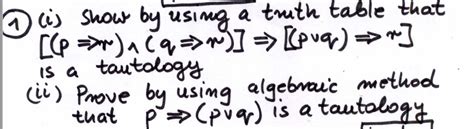 ① (i) Show by using a truth table that
[(p ⇒ r) ∧ (q ⇒ r)] ⇒ [(p ∨ q) ⇒ r]
is a tautology
(ii) Prove by using algebraic method
that p ⇒ (p ∨ q) is a tautology